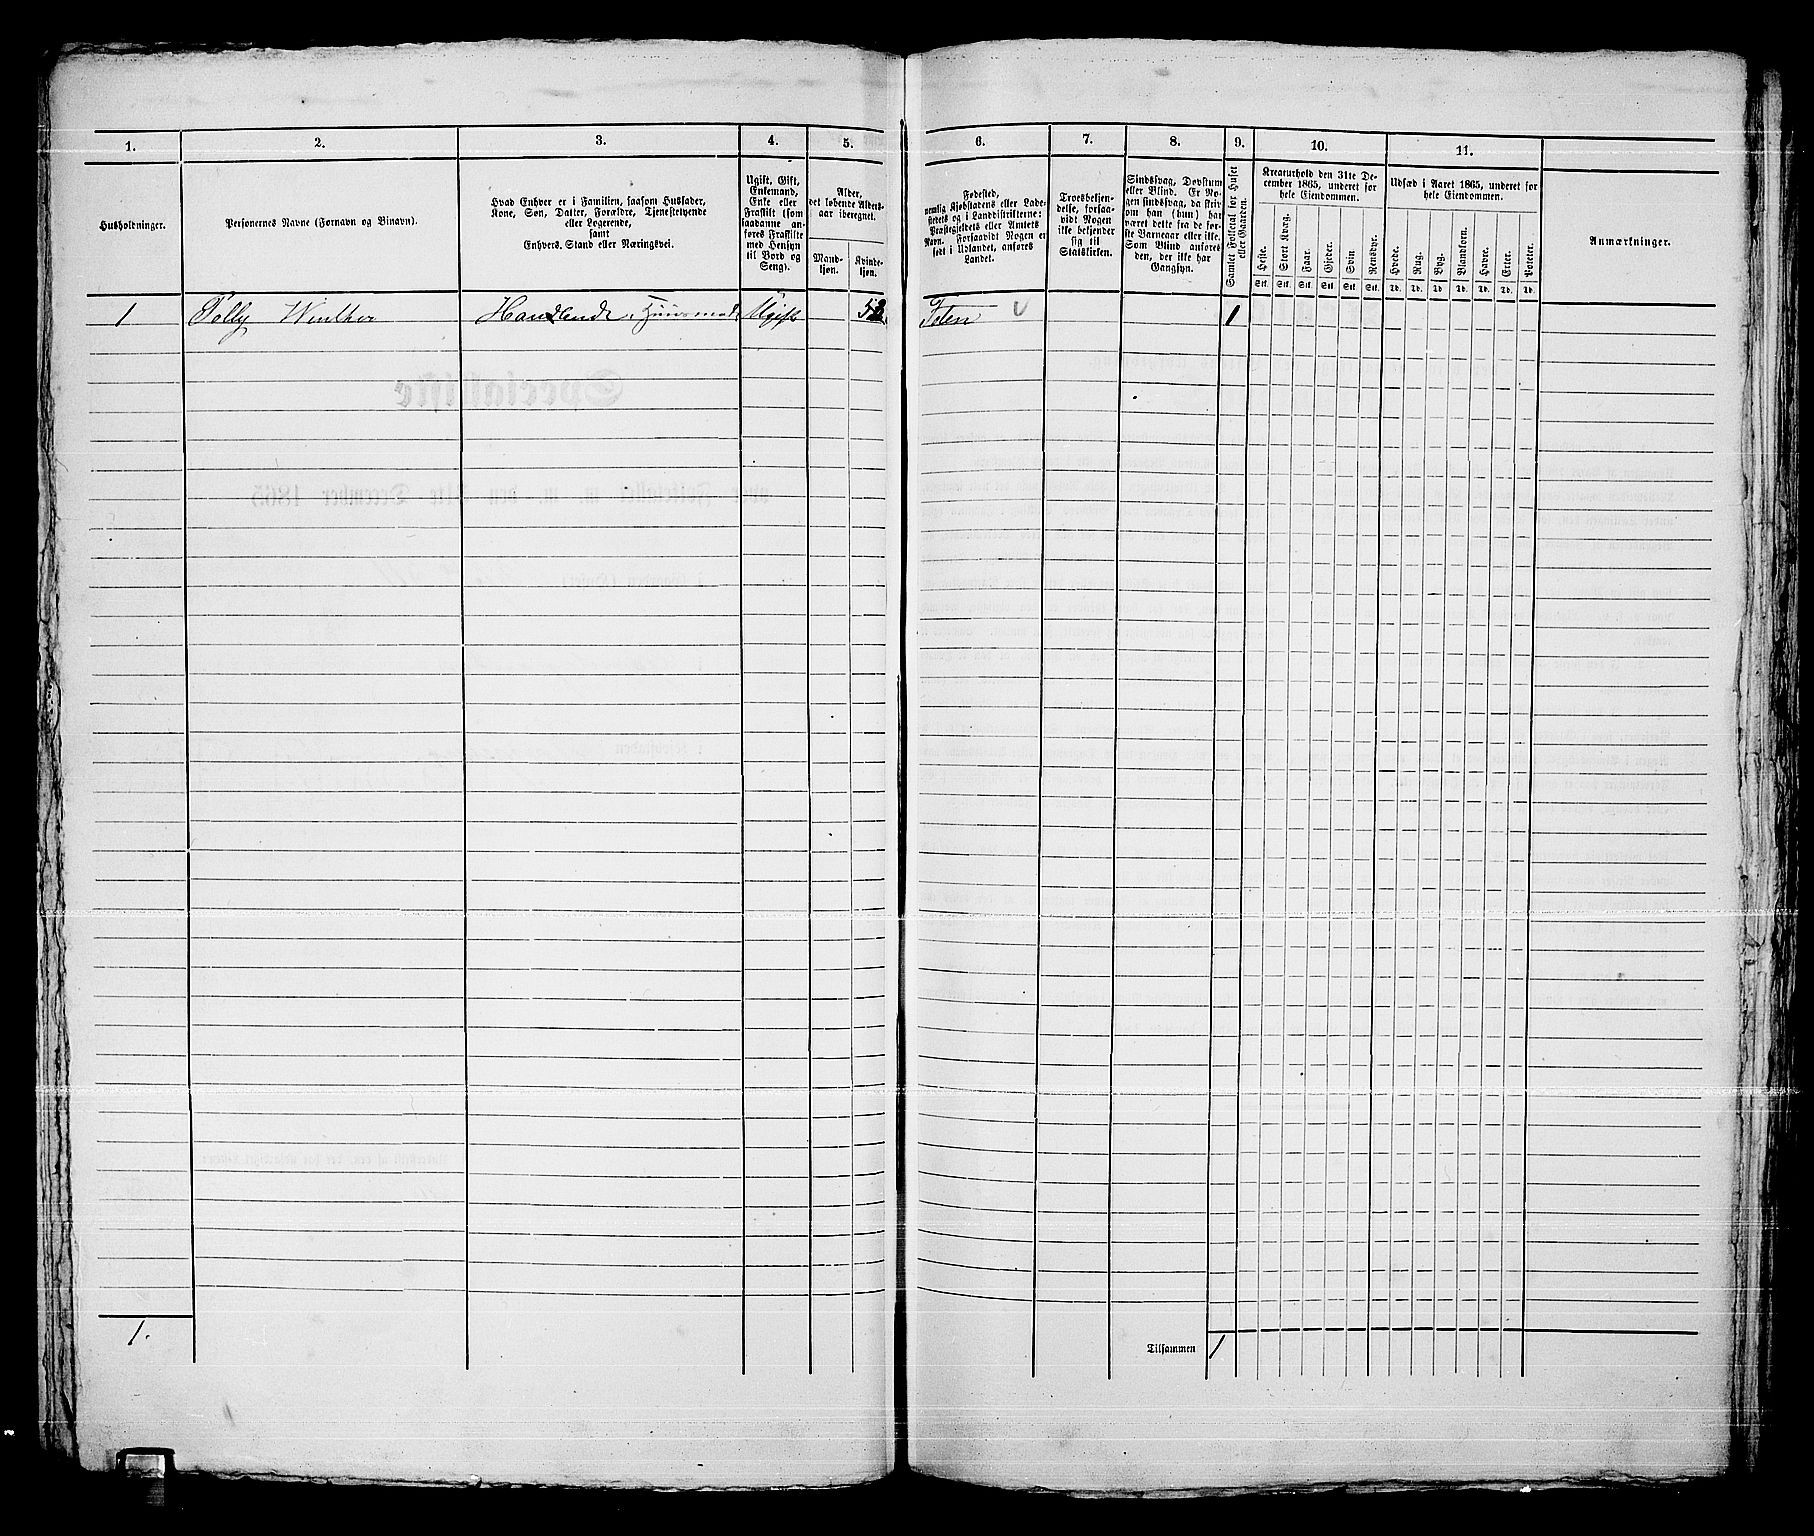 1. 2. 3. 4. 5. 6. 7. 8. 9. 10. 11.
Husholdninger.
Personernes Navne (Fornavn og Binavn).
Hvad Enhver er i Familien, saasom Husfader,
Kone, Søn, Datter, Forældre, Tjenestetyende
eller Logerende,
samt
Enhvers Stand eller Næringsvei.
Ugift, Gift,
Enkemand,
Enke eller
Fraskilt (som
saadanne an-
føres Fraskilte
med Hensyn
til Bord og
Seng).
Alder,
det løbende Alders-
aar iberegnet.
Mand-
kjøn.
Kvinde-
kjøn.
Fødested,
nemlig Kjøbstadens eller Lade-
stedets og i Landdistrikterne:
Præstegjeldets eller Amtets
Navn. Forsaavidt Nogen er
født i Udlandet, anføres
Landet.
Troesbekjen-
delse, forsaa-
vidt Nogen
ikke bekjender
sig til
Statskirken.
Sindssvag, Døvstum
eller Blind. Er No-
gen sindssvag, da skriv
om han (hun) har
været dette fra de før-
ste Barneaar eller ikke.
Som Blind anføres
den, der ikke har
Gangsyn.
Samlet Folketal for Huset
eller Gaarden.
Kreaturhold den 31te De-
cember 1865, underet for
hele Eiendommen.
Heste. Stort Kvæg. Faar. Gjeder. Svin Rensdyr.
Stk. Stk. Stk. Stk. Stk. Stk.
Udsæd i Aaret 1865, underet for
hele Eiendommen.
Hvede. Rug. Byg. Blandkorn. Havre. Erter. Poteter.
Td. Td. Td. Td. Td. Td. Td.
Anmærkninger.
1 Polly Winther Handlende Ugift Toten 1
1.
Tilsammen 1